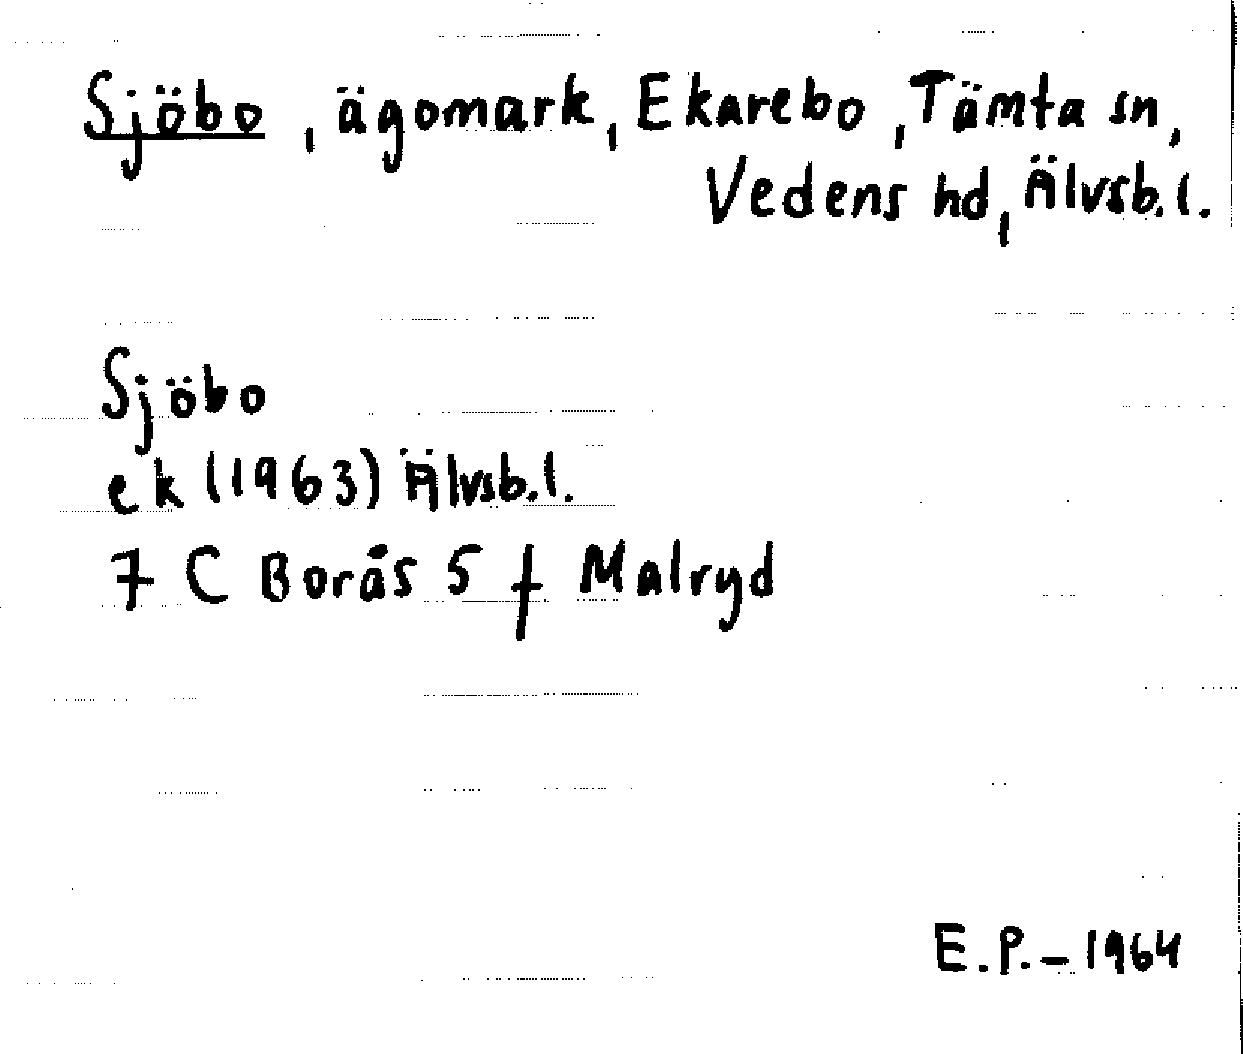 Sjöbo, ägomark, Ekarebo, Tämta sn,
Vedens hd, Älvsb.l.
Sjöbo
ek (1963) Älvsb.l.
7 C Borås 5 f Malryd
E.P.-1964